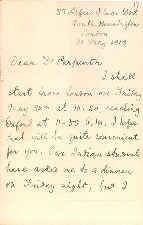 37, Alfred Place West
South Kensington
London
21 May 1913
Dear Dr Carpenter
I shall
start from London on Friday
May 23rd at 10.20, reaching
Oxford at 11-35 A.M. I hope
that will be quite convenient
for you. Our Indian students
have asked me to a dinner
on Friday night, but I